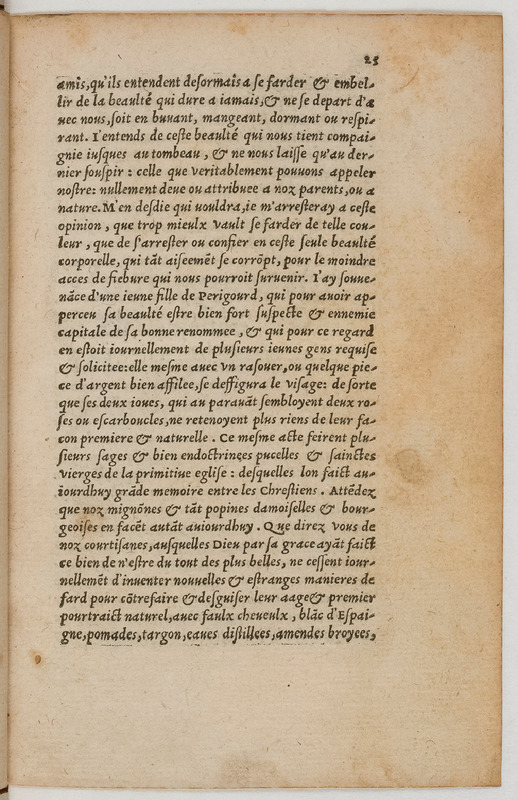 25
amis, qu'ils entendent desormais a se farder & embel-
lir de la beaulté qui dure a iamais, & ne se depart d'a
uec nous, soit en buuant, mangeant, dormant ou respi-
rant. I'entends de ceste beaulté qui nous tient compai-
gnie iusques au tombeau, & ne nous laisse qu'au der-
nier souspir : celle que veritablement pouuons appeler
nostre: nullement deue ou attribuee a noz parents, ou a
nature. M'en desdie qui uouldra, ie m'arresteray a ceste
opinion, que trop mieulx vault se farder de telle cou-
leur, que de s'arrester ou confier en ceste seule beaulté
corporelle, qui tāt aiseemēt se corrōpt, pour le moindre
acces de fiebure qui nous pourroit suruenir. I'ay souue-
nāce d'une ieune fille de Perigourd, qui pour auoir ap-
perceu sa beaulté estre bien fort suspecte & ennemie
capitale de sa bonne renommee, & qui pour ce regard
en estoit iournellement de plusieurs ieunes gens requise
& solicitee: elle mesme auec vn rasouer, ou quelque pie-
ce d'argent bien affilee, se deffigura le visage: de sorte
que ses deux ioues, qui au parauāt sembloyent deux ro-
ses ou escarboucles, ne retenoyent plus riens de leur fa-
con premiere & naturelle. Ce mesme acte feirent plu-
sieurs sages & bien endoctrinees pucelles & sainctes
vierges de la primitiue eglise : desquelles lon faict au-
iourdhuy grāde memoire entre les Chrestiens. Attēdez
que noz mignōnes & tāt popines damoiselles & bour-
geoises en facēt autāt auiourdhuy. Que direz vous de
noz courtisanes, ausquelles Dieu par sa grace ayāt faict
ce bien de n'estre du tout des plus belles, ne cessent iour-
nellemēt d'inuenter nouuelles & estranges manieres de
fard pour cōtrefaire & desguiser leur aage & premier
pourtraict naturel, auec faulx cheueulx, blāc d'Espai-
gne, pomades, targon, eaues distillees, amendes broyees,